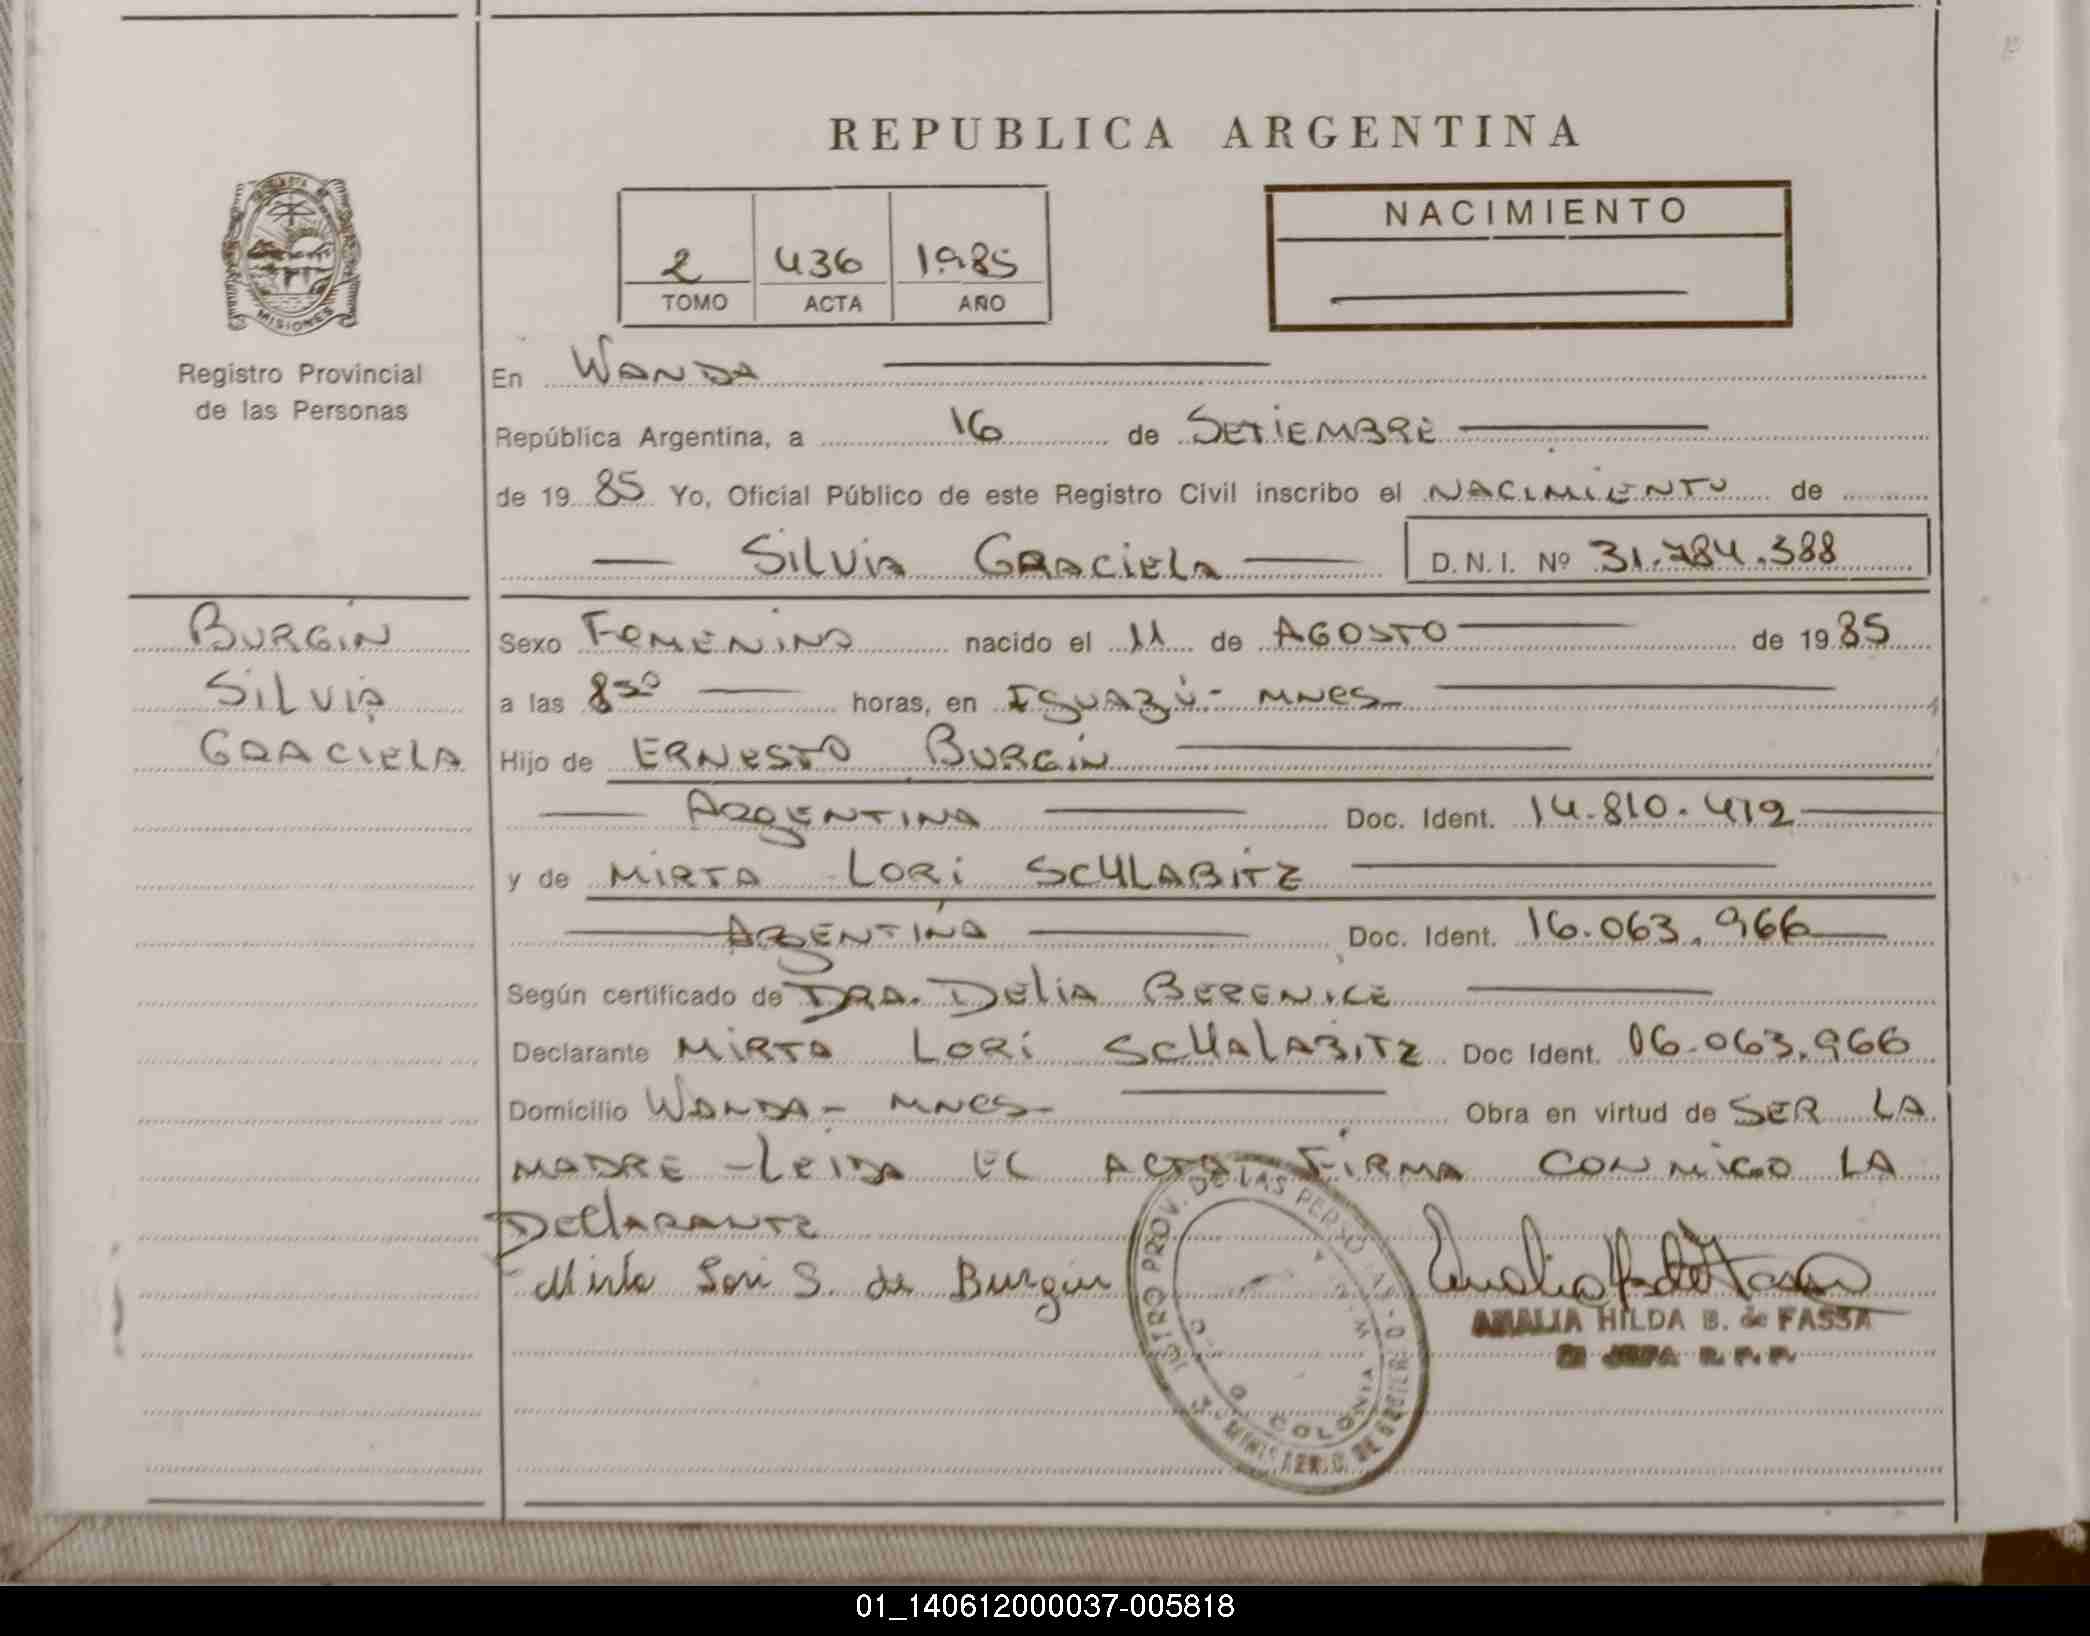 REPUBLICA ARGENTINA
NACIMIENTO
2 436 1985
TOMO ACTA AÑO
MISIONES
Registro Provincial
de las Personas
En WANDA
República Argentina, a 16 de SETIEMBRE
de 1985 Yo, Oficial Público de este Registro Civil inscribo el NACIMIENTO de
SILVIA GRACIELA D.N.I. Nº 31.784.388
BURGIN
SILVIA
GRACIELA
Sexo FEMENINO nacido el 11 de AGOSTO de 1985
a las 8 30 horas, en IGUAZÚ- MNES
Hijo de ERNESTO BURGIN
ARGENTINA Doc. Ident. 14.810.412
y de MIRTA LORI SCHLABITZ
ARGENTINA Doc. Ident. 16.063.966
Según certificado de DRA. DELIA BERENICE
Declarante MIRTA LORI SCHALABITZ Doc Ident. 16.063.966
Domicilio WANDA- MNES- Obra en virtud de SER LA
MADRE -LEIDA EL ACTA FIRMA CONMIGO LA
DECLARANTE
Mirta Lori S. de Burgin
AMALIA HILDA B. de FASSA
JEFA R. P. P.
PROV. DE LAS PERSONAS
COLONIA
MINISTERIO DE GOBIERNO
01_140612000037-005818